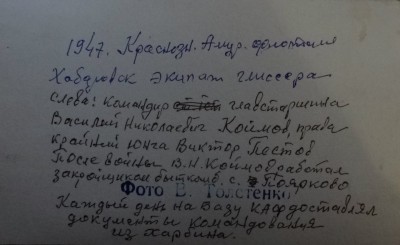 1947. Краснозн. Амур. флотилия
Хабаровск экипаж глиссера
Слева: командир главстаршина
Василий Николаевич Коймов, права
крайний юнга Виктор Пестов
После войны В.Н. Коймов работал
закройщиком быткомб с. Поярково
Фото В. Толстенко
Каждый день на базу КАФ доставлял
документы командования
из Харбина.